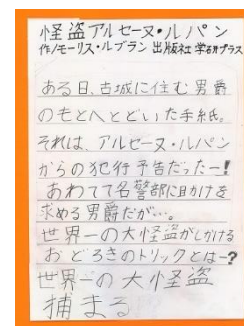 怪盗アルセーヌ・ルパン
作/モーリス・ルブラン 出版社 学研プラス
ある日、古城に住む男爵
のもとへとどいた手紙。
それは、アルセーヌ・ルパン
からの犯行予告だったー!
あわてて名警部に助けを
求める男爵だが…。
世界一の大怪盗がしかける
おどろきのトリックとは-?
世界一の大怪盗
捕まる